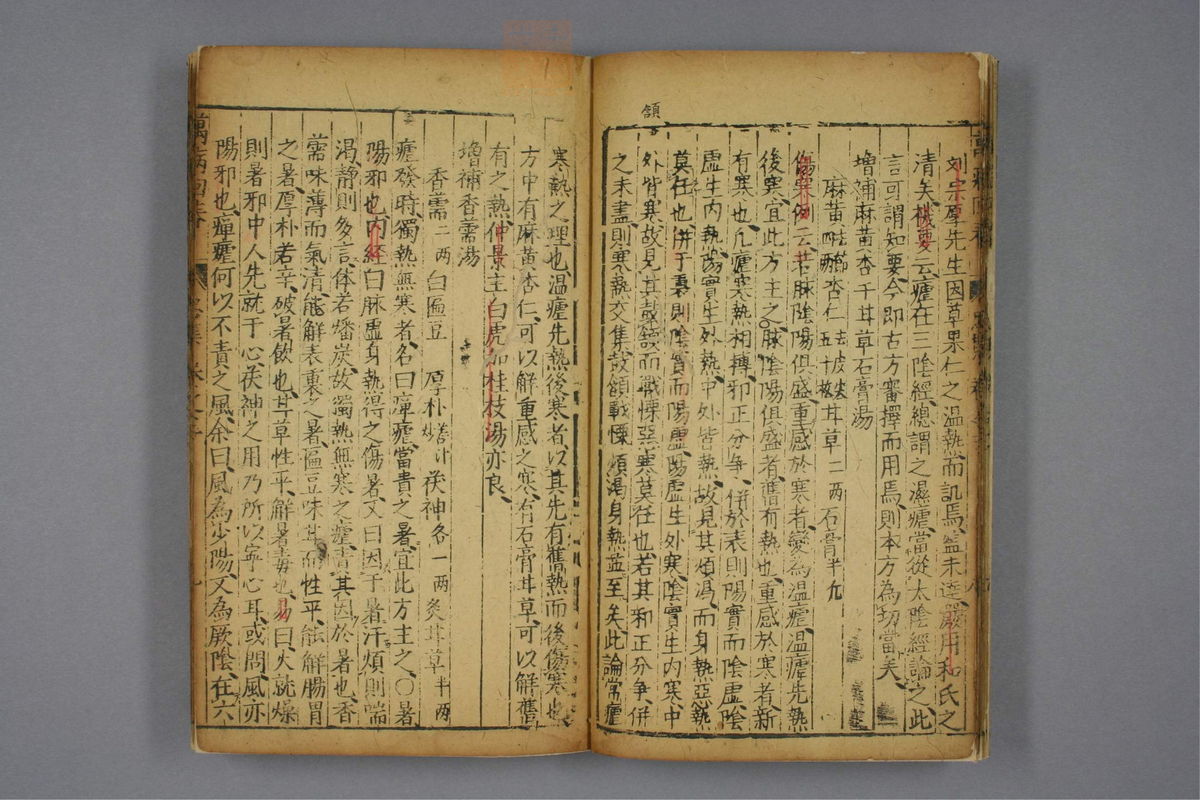 頷
劉宗厚先生因草果仁之溫熱而訊焉盖未達嚴用和氏之
清矣機要云瘧在三陰經總謂之濕瘧當從太陰經論之此
言可謂知要今即古方審擇而用焉則本方為切當矣
增補麻黃杏子甘草石膏湯
麻黃四兩去節 杏仁五十枚去皮尖 甘草二兩 石膏半斤
傷寒例云若脉陰陽俱盛重感於寒者變為温瘧温瘧先熱
後寒宜此方主之脉陰陽俱盛者舊有熱也重感於寒者新
有寒也凡瘧寒熱相搏邪正分爭併於表則陽實而陰虛陰
虛生內熱陽實生外熱中外皆熱故見其煩渴而身熱惡熱
莫任也併于裏則陰實而陽虛陽虛生外寒陰實生内寒中
外皆寒故見其鼓頷而戰慄惡寒莫任也若其邪正分爭併
之未盡則寒熱交集鼓頷戰慄煩渴身熱並至矣此論常瘧
寒熱之理也温瘧先熱後寒者以其先有舊熱而後傷寒也
方中有麻黃杏仁可以解重感之寒有石膏甘草可以解舊
有之熱仲景主白虎加桂枝湯亦良
增補香薷湯
香薷二兩 白匾豆 厚朴薑汁炒 茯神各一兩 炙甘草半兩
瘧發時獨熱無寒者名曰癉瘧當責之暑宜此方主之〇暑
陽邪也内經曰脉虛身熱得之傷暑又曰因于暑汗煩則喘
渴靜則多言体若燔炭故獨熱無寒之瘧責其因於暑也香
薷味薄而氣清能解表裏之暑匾豆味甘而性平能解腸胃
之暑厚朴苦辛破暑飲也甘草性平解暑毒也易曰火就燥
則暑邪中人先就于心茯神之用乃所以寧心耳或問風亦
陽邪也癉瘧何以不責之風余曰風為少陽又為厥陰在六